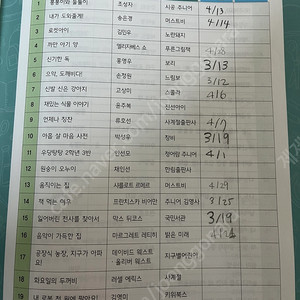 1 뿡뿡이와 돌돌이 조성자 시공 주니어 4/13
2 내가 도와줄게! 송은경 머스트비 4/14
3 로켓아이 김민우 노란돼지
4 까만 아기 양 엘리자베스 쇼 푸른그림책
5 신기한 독 홍영우 보리 3/13
6 으악, 도깨비다! 손정원 느림보 3/12
7 신발 신은 강아지 고상미 스콜라 4/6
8 재밌는 식물 이야기 윤주복 진선아이
9 언제나 칭찬 류호선 사계절출판사 4/7
10 아홉 살 마음 사전 박성우 창비 3/19
11 우당탕탕 2학년 3반 민선모 장어람 주니어 4/1
12 원숭이 오누이 채인선 한림출판사
13 움직이는 집 샤를로트 르메르 머스트비 4/29
14 책 먹는 여우 프란치스카 비어만 주니어 김영사 3/25
15 잃어버린 전사를 찾아서 막스 뒤코스 국민서관 3/19
16 음악이 가득한 집 마르그레테 레티히 밝은 미래
17 공장식 농장, 지구가 아파요! 데이비드 웨스트 올리버 웨스트 지구별어린이
18 화요일의 두꺼비 러셀 에릭슨 사계절
김영미 키위북스